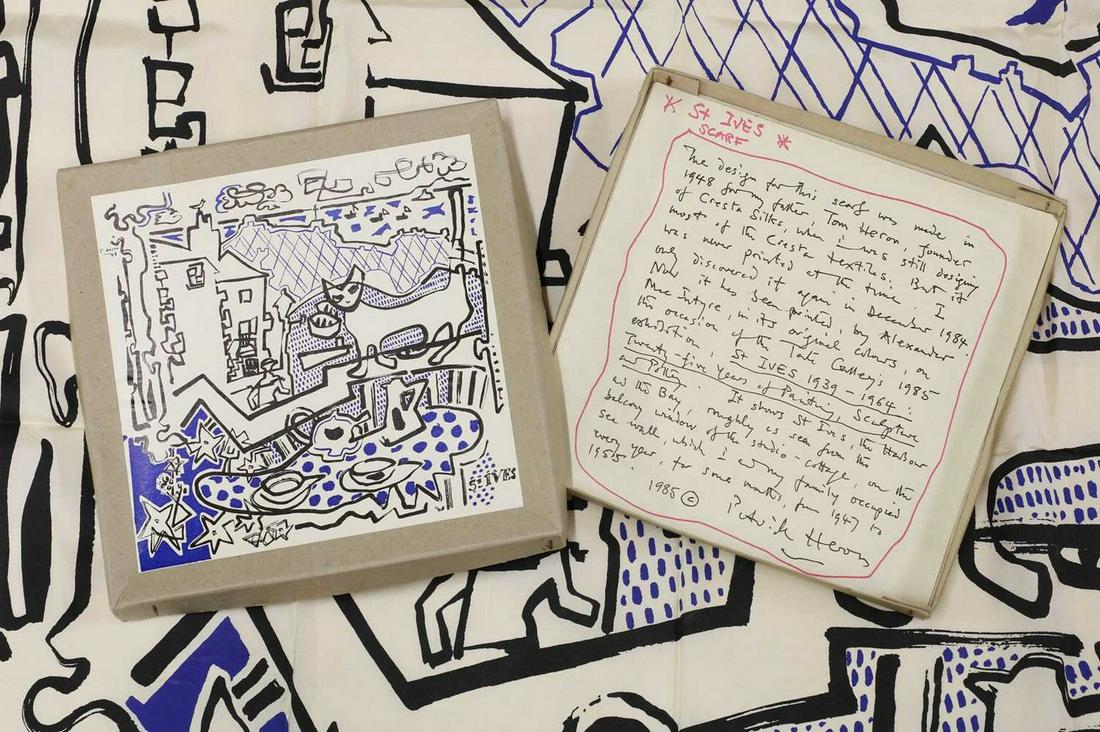 St IVES
* St IVES *
SCARF
The design for this scarf was made in
1948 for my father Tom Heron, founder
of Cresta Silks, when I was still designing
most of the Cresta textiles. But it
was never printed at the time. I
only discovered it again in December 1984.
Now it has been printed, by Alexander
MacIntyre, in its original colours, on
the occasion of the Tate Gallery's 1985
exhibition, St IVES 1939-1964:
Twenty-five Years of Painting, Sculpture
and Pottery. It shows St Ives, the Harbour
and the Bay, roughly as seen from the
balcony window of the studio cottage on the
sea wall, which I & my family occupied
every year, for some months, from 1947 to
1955.
1985 © Patrick Heron